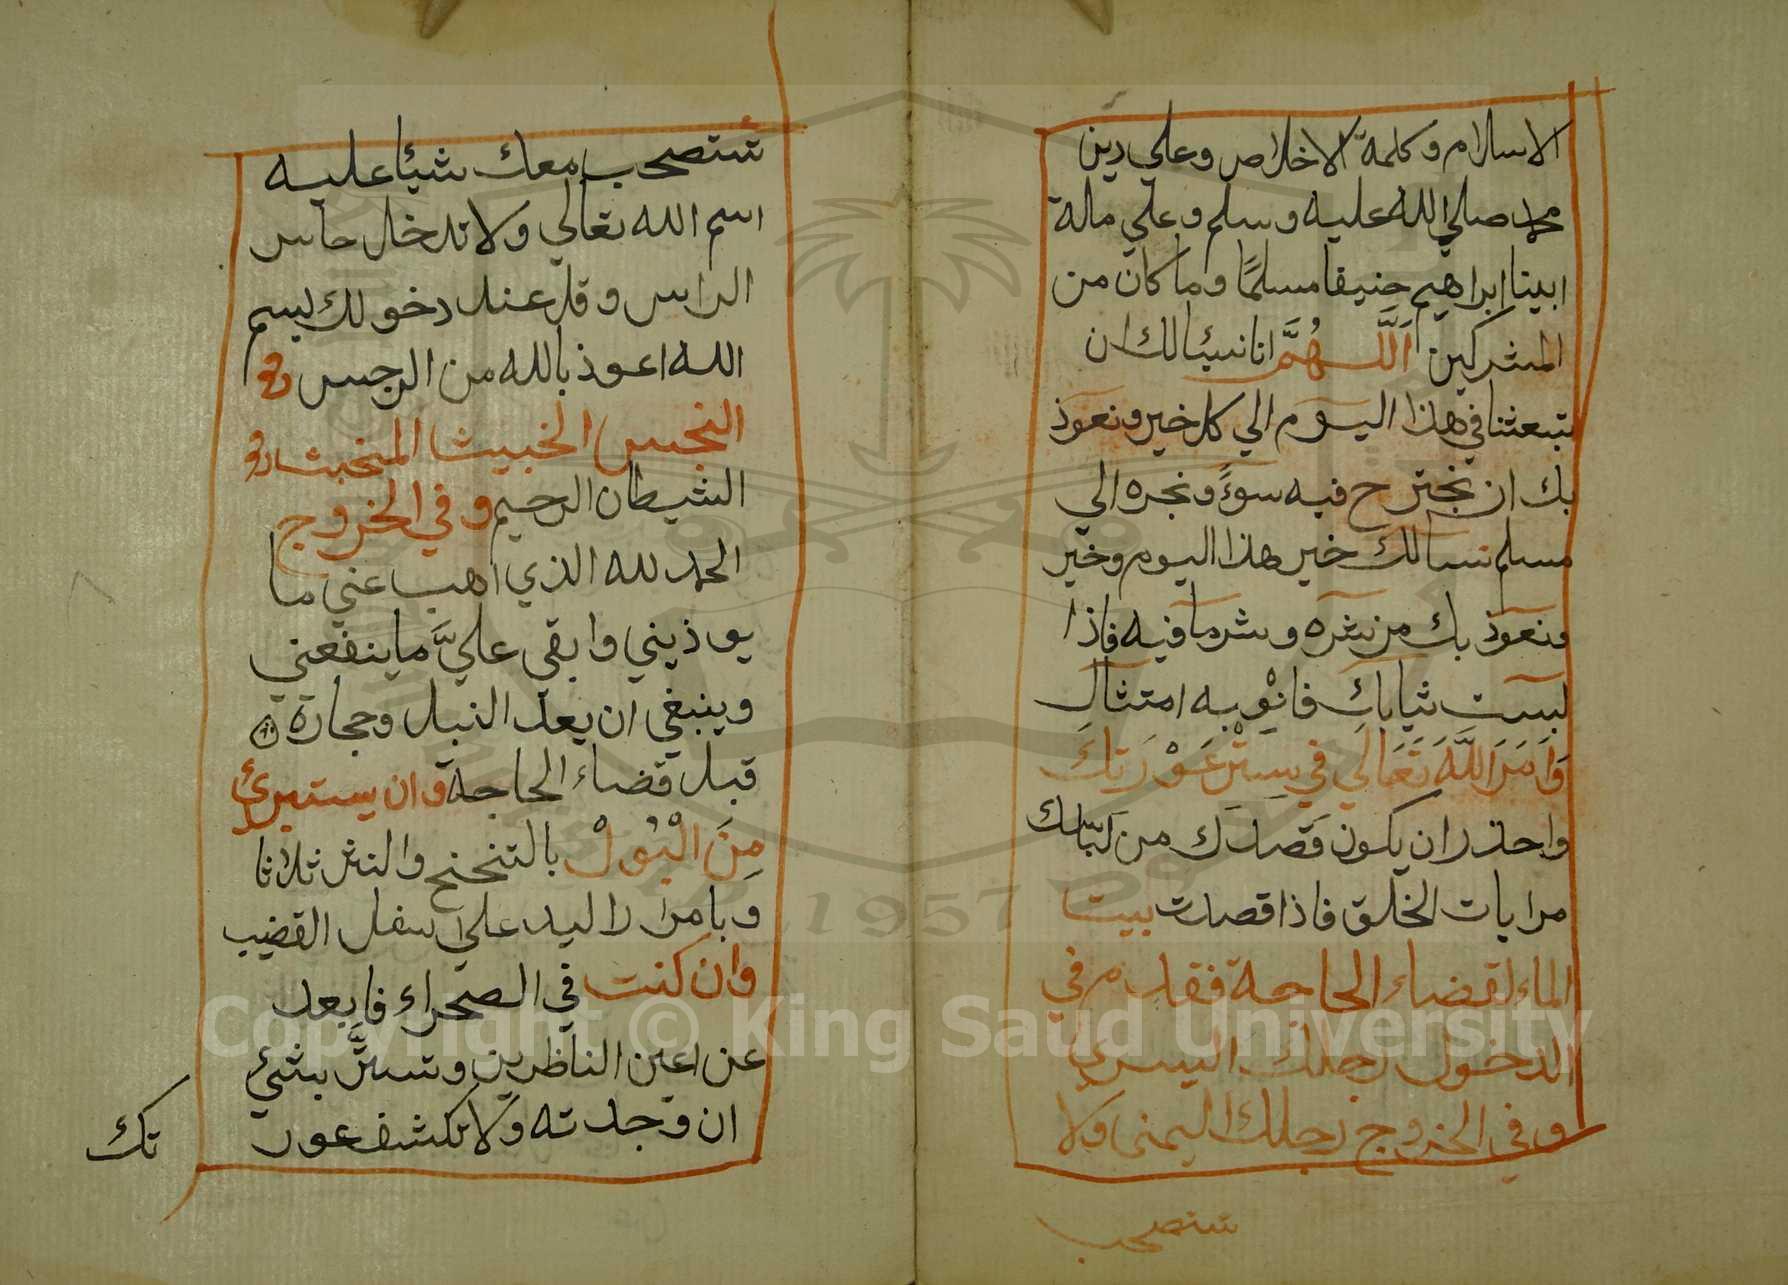 الاسلام وكلمة الاخلاص وعلي دين
محمد صلي الله عليه وسلم وعلي مالة
ابينا ابراهيم حنيفا مسلمًا وما كان من
المشركين اَللَّهُمَّ انا نسئالك ان
تبعثنا في هذا اليوم الي كل خير ونعوذ
بك ان نجترح فيه سوءً ونجره الي
مسلم نسالك خير هذا اليوم وخير
ونعوذ بك من شره وشر ما فيه فاذا
لبست ثيابك فانْوِ به امتثال
وَاَمَرَ اللَّهَ تَعَالَي في سِتْرِ عَوْرَتِكَ
واحذر ان يكون قصدك من لباسك
مرايات الخلق فاذا قصدت بيتا
الماء لقضاء الحاجة فقدم في
الدخول رجلك اليسري
وفي الخروج رجلك اليمنى ولا
ستصحب
تستصحب معك شيئا عليه
اسم الله تعالي ولا تدخل حاس
الراس وقل عند دخولك بسم
الله اعوذ بالله من الرجس
النجس الخبيث المخبث
الشيطان الرحيم وفي الخروج
الحمد لله الذي اهب عني ما
يوذيني وابقي عليَّ ما ينفعني
وينبغي ان يعد النبل وحجارة
قبل قضاء الحاجة وان يستبرئ
مِنَ الْبُوْلْ بالتنحنح والنثر ثلاثا
وبامرار اليد علي اسفل القضيب
وان كنت في الصحراء فابعد
عن اعين الناظرين وتستَّر بشيء
ان وجدته ولا تكشف عور
تك
Copyright © King Saud University
1957